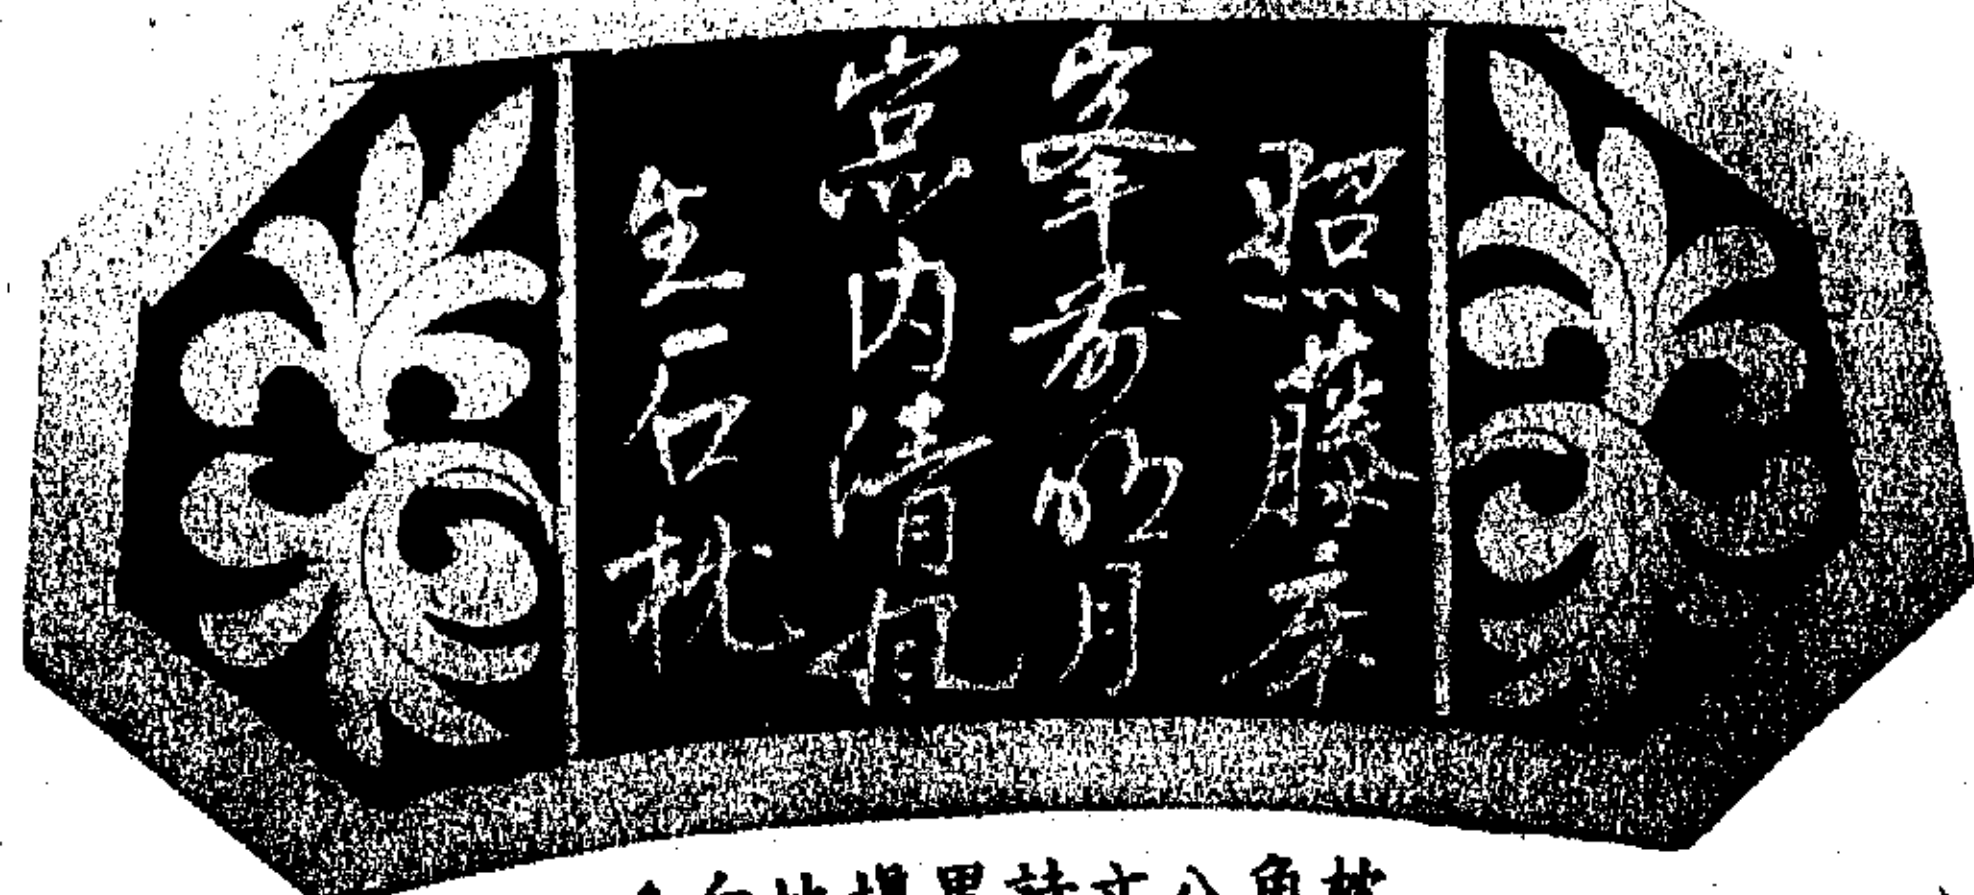 照藤床
峯前明月
窓内清風
生石枕
白地黑詩文八角枕